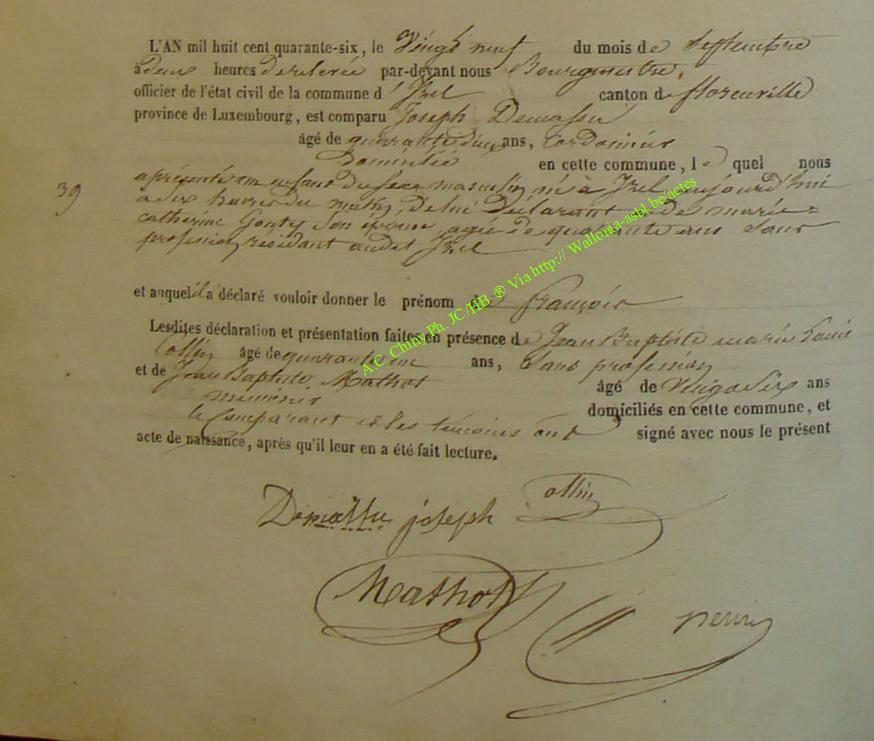 L'AN mil huit cent quarante-six, le Vingt neuf du mois de Septembre
à deux heures de relevée par-devant nous Bourgmestre,
officier de l'état civil de la commune d'Izel canton de florenville
province de Luxembourg, est comparu Joseph Demassu
âgé de quarante deux ans, cordonnier
Domicilié en cette commune, le quel nous
39
a présenté un enfant du sexe masculin, né à Izel aujourd'hui
à dix heures du matin, de lui Déclarant et de marie
catherine Gonty Son épouse, agée de quarante ans Sans
profession, résidant audit Izel
et auquel il a déclaré vouloir donner le prénom de françois
Lesdites déclaration et présentation faites en présence de Jean Baptiste marie Louis
Collin âgé de quarante ans, Sans profession
et de Jean Baptiste Mathot âgé de Vingt Six ans
menuisier domiciliés en cette commune, et
le Comparant et les témoins ont signé avec nous le présent
acte de naissance, après qu'il leur en a été fait lecture.
Demassu joseph Collin
Mathot
A.C. Chiny Ph. JC/HB. ® Via http:// Wallonia-asbl.be/actes